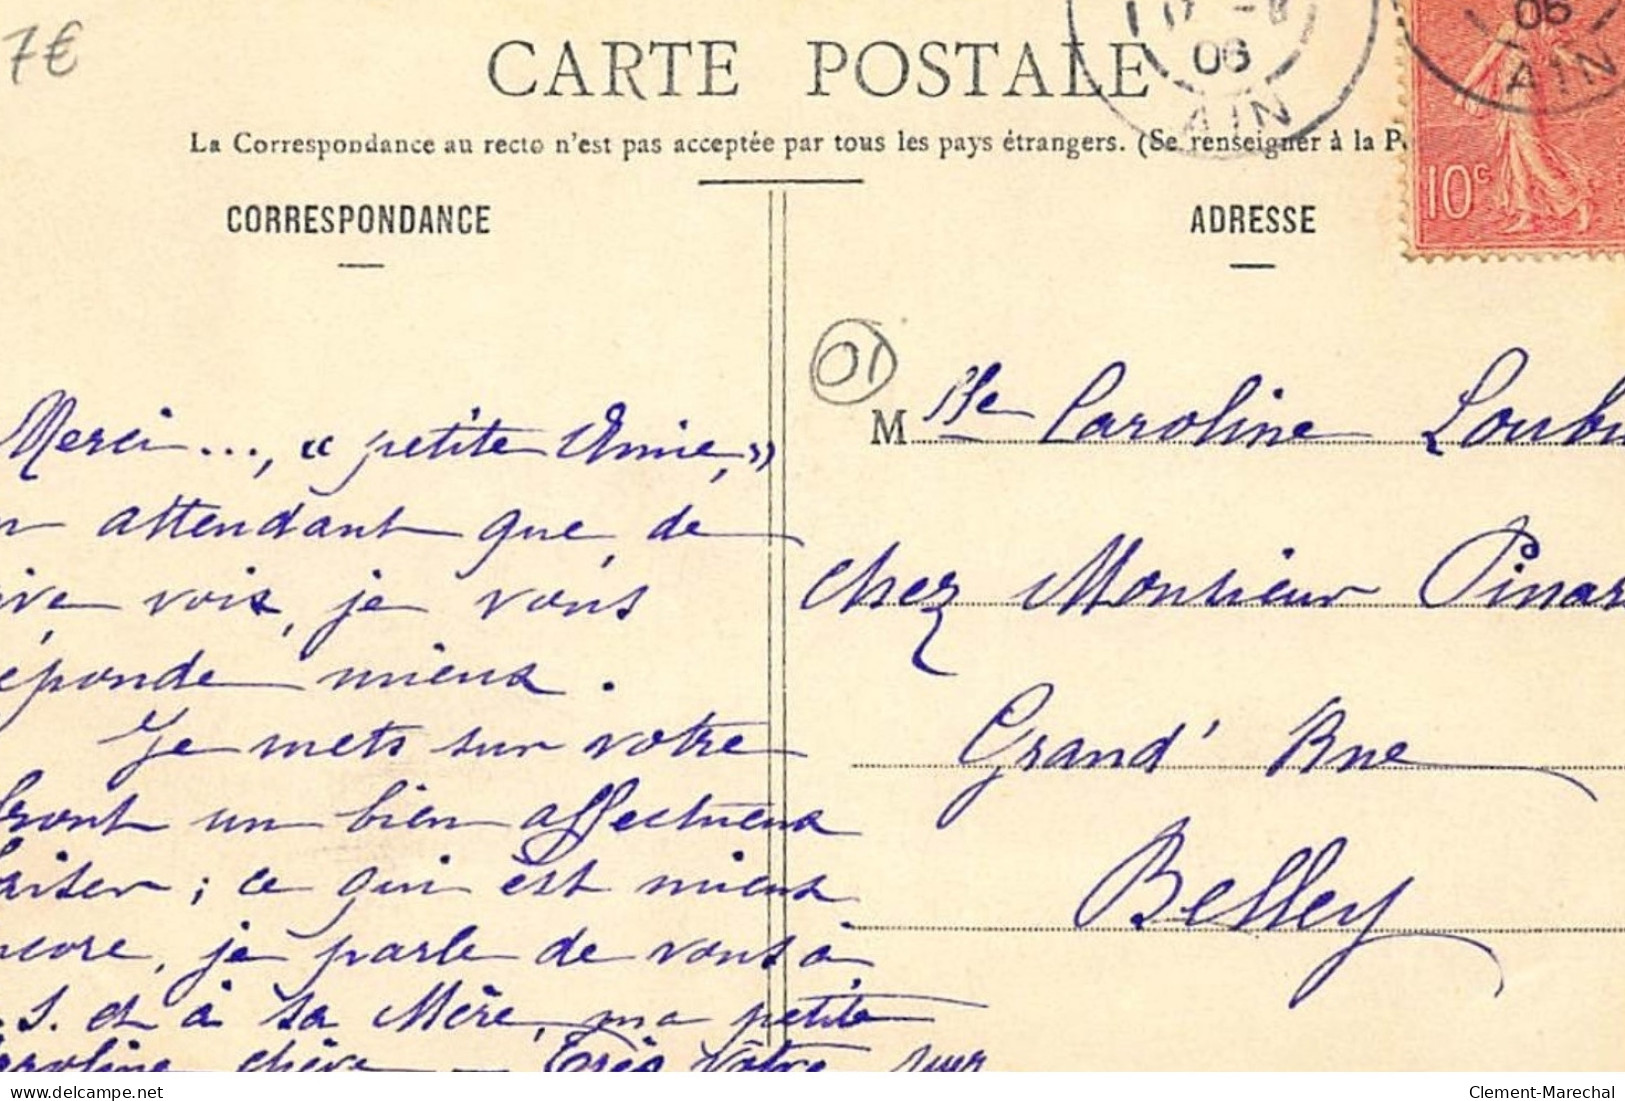 7€
CARTE POSTALE
06
AIN
06
AIN
La Correspondance au recto n'est pas acceptée par tous les pays étrangers. (Se renseigner à la P
10c
CORRESPONDANCE
ADRESSE
01
Mlle Caroline Loub
chez Monsieur Pinar
Grand' Rue
Belley
Merci..., « petite Amie, »
attendant que, de
ive voix, je vous
éponde mieux.
Je mets sur votre
front un bien affectueux
aiser ; ce qui est mieux
ncore, je parle de vous à
. S. et à sa Mère, ma petite
aroline chère — Très vôtre
Clement-Marechal